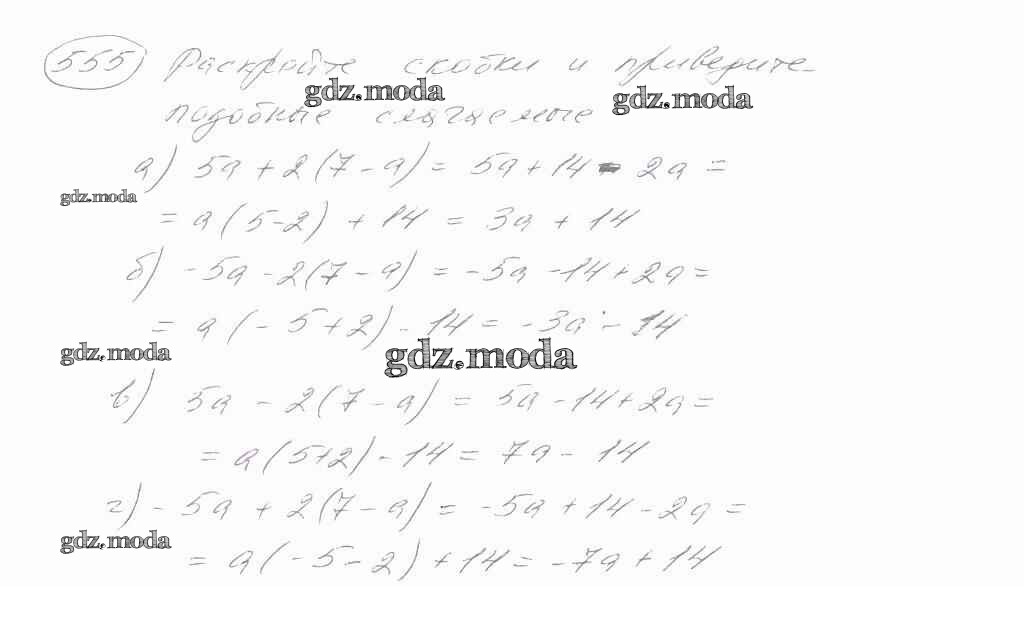 555) Раскройте скобки и приведите
gdz.moda gdz.moda
подобные слагаемые
а) 5a + 2(7 - a) = 5a + 14 - 2a =
gdz.moda
= a(5-2) + 14 = 3a + 14
б) -5a - 2(7 - a) = -5a - 14 + 2a =
= a(-5+2) - 14 = -3a - 14
gdz.moda gdz.moda
в) 5a - 2(7 - a) = 5a - 14 + 2a =
= a(5+2) - 14 = 7a - 14
г) -5a + 2(7 - a) = -5a + 14 - 2a =
gdz.moda
= a(-5 - 2) + 14 = -7a + 14